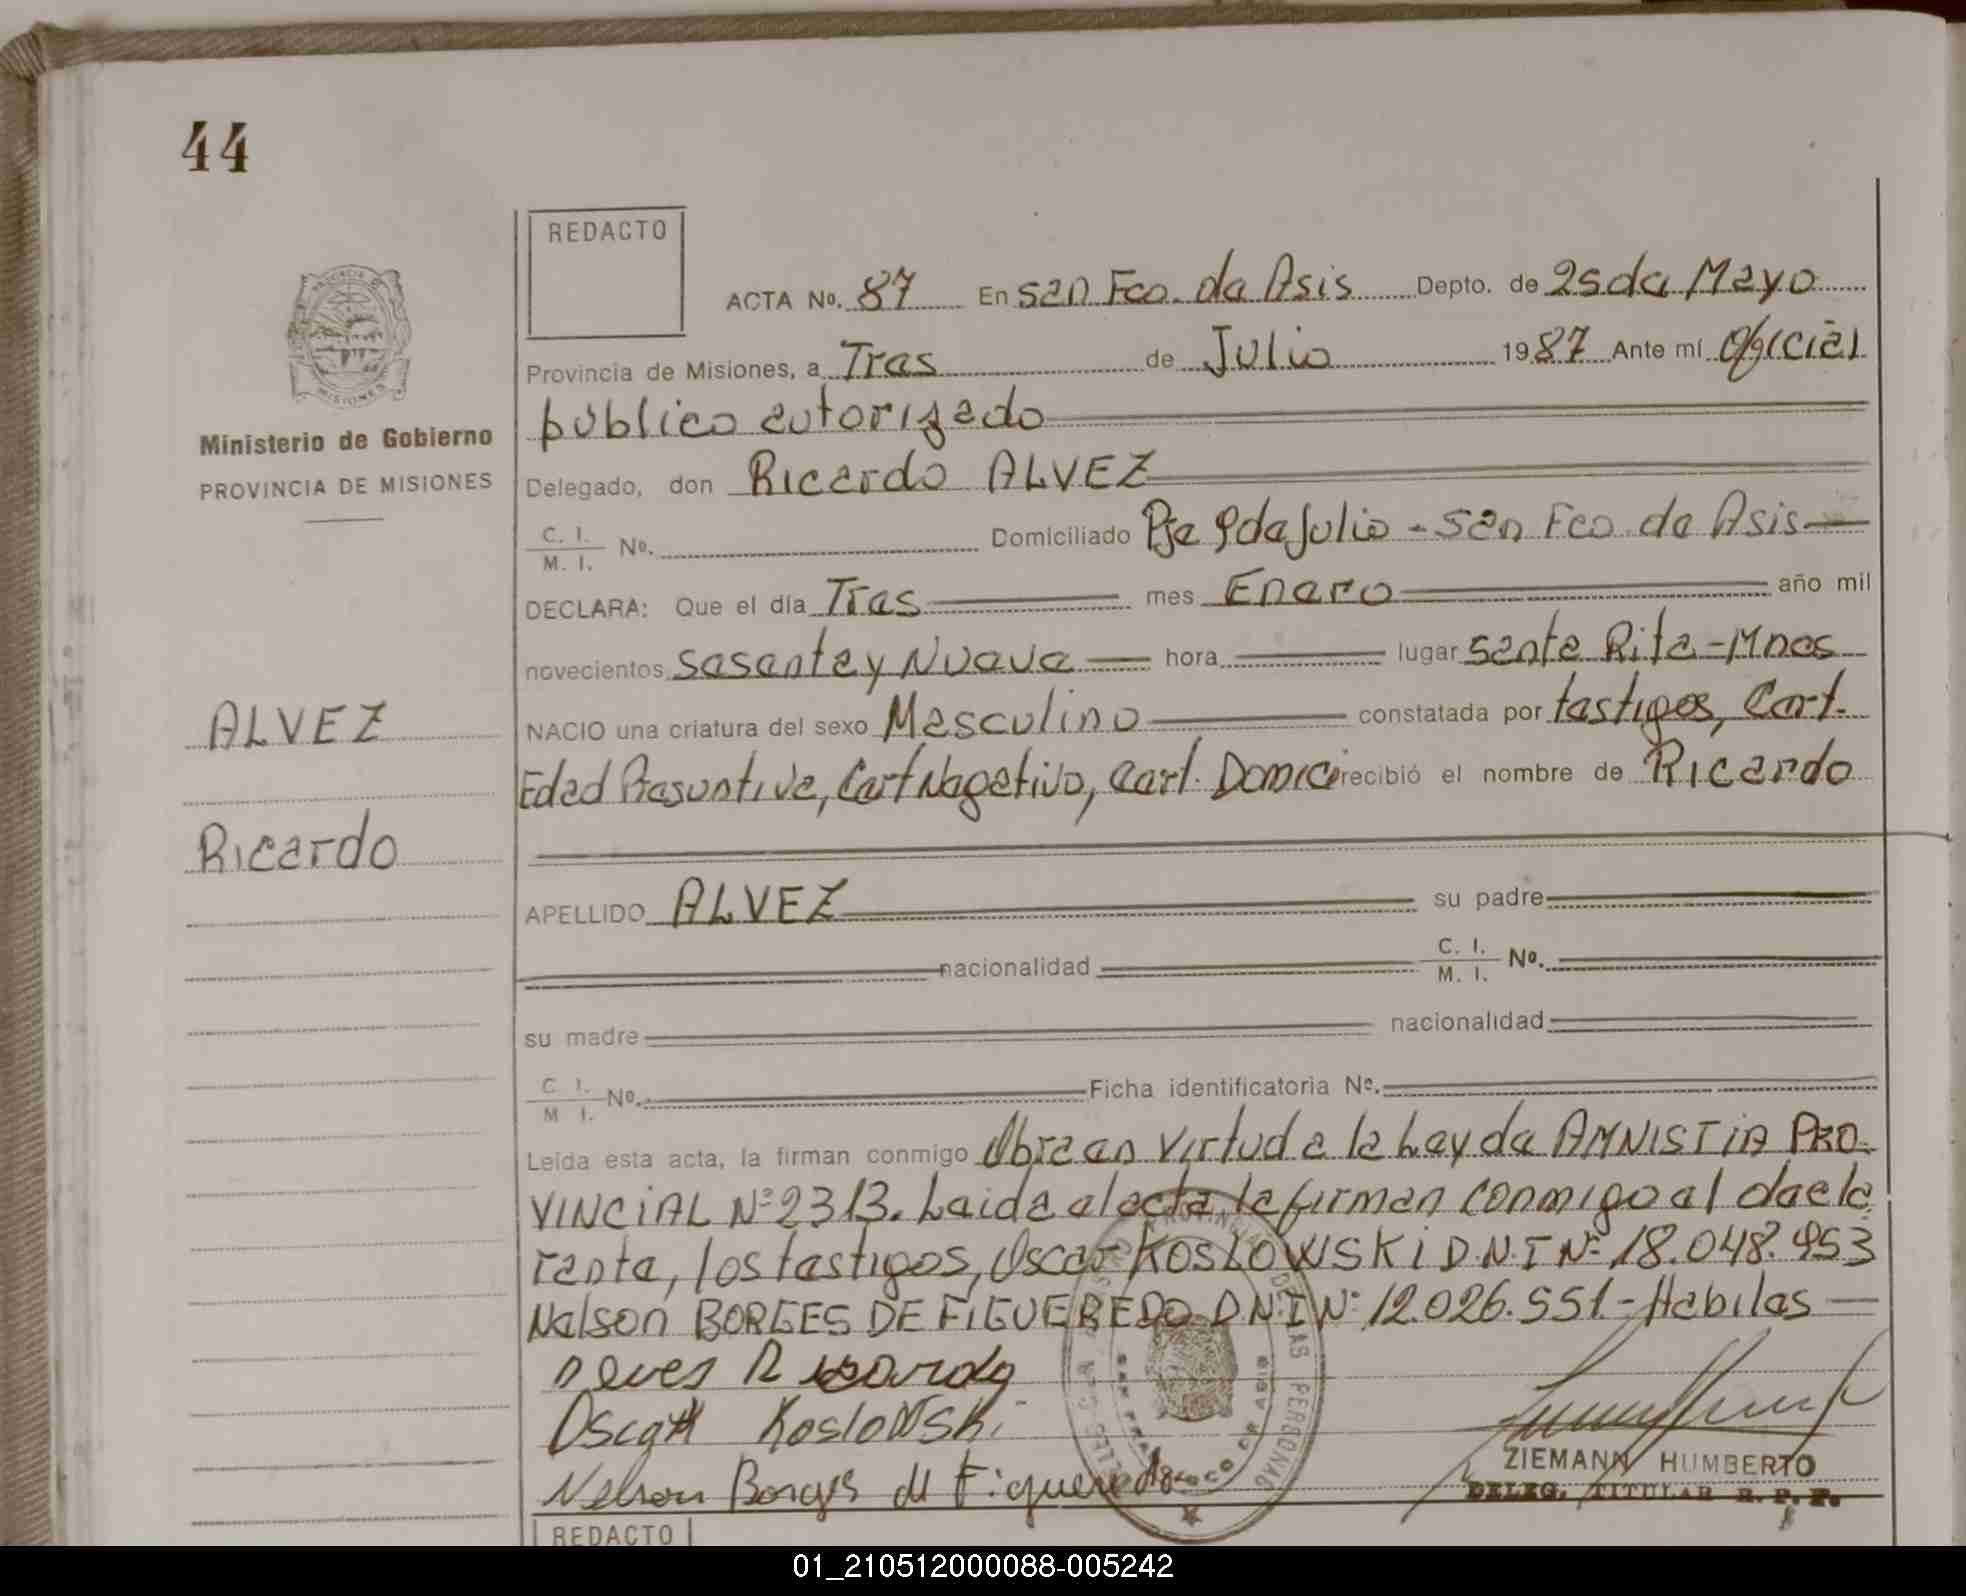 44
REDACTO
ACTA No. 87 En San Fco. de Asis Depto. de 25 de Mayo
Provincia de Misiones, a Tres de Julio 1987 Ante mí Oficial
público autorizado
Delegado, don Ricardo ALVEZ
C. I.
M. I. No. Domiciliado Pje 9 de Julio - San Fco. de Asis
DECLARA: Que el día Tres mes Enero año mil
novecientos sesenta y Nueve hora lugar Santa Rita - Mnes
NACIO una criatura del sexo Masculino constatada por testigos, Cert.
Edad Presuntiva, Cert Negativo, Cert. Domici recibió el nombre de Ricardo
APELLIDO ALVEZ su padre
nacionalidad C. I.
M. I. No.
su madre nacionalidad
C. I.
M I. No. Ficha identificatoria No.
Leída esta acta, la firman conmigo Obra en virtud a la Ley de AMNISTIA PRO-
VINCIAL Nº 2313. Leida el acta, la firman conmigo el decla
rante, los testigos, Oscar KOSLOWSKI D.N.I Nº 18.048.953
Nelson BORGES DE FIGUEREDO D.N.I Nº 12.026.551.- Habiles
Oscar Koslowski
Nelson Borges de Figueredo
ZIEMANN HUMBERTO
DELEG. TITULAR R. P. P.
REDACTO
PROVINCIA DE MISIONES
Ministerio de Gobierno
PROVINCIA DE MISIONES
ALVEZ
Ricardo
01_210512000088-005242